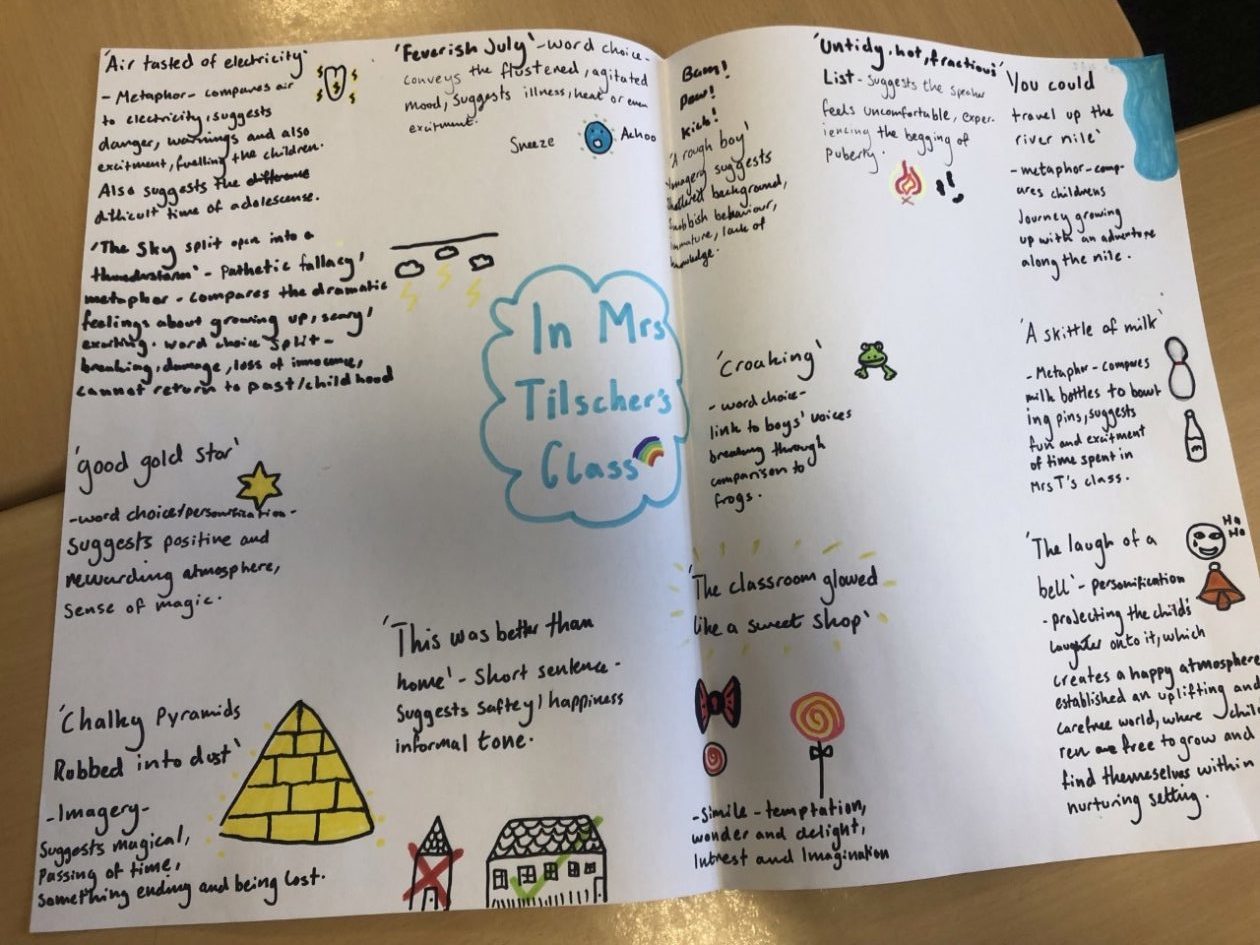 'Air tasted of electricity'
- Metaphor - compares air
to electricity, suggests
danger, warnings and also
excitment, fuelling the children.
Also suggests the difference
difficult time of adolescense.
'The Sky split open into a
thunderstorm' - Pathetic fallacy/
metaphor - compares the dramatic
feelings about growing up, scary/
exciting. word choice 'split' -
breaking, damage, loss of innocence,
cannot return to past/childhood
'good gold star'
- word choice/personification -
Suggests positive and
rewarding atmosphere,
sense of magic.
'Chalky Pyramids
Robbed into dust'
- Imagery -
Suggests magical,
Passing of time,
something ending and being lost.
'Feverish July' - word choice -
conveys the flustered, agitated
mood, suggests illness, heat or even
excitment.
Sneeze
Achoo
In Mrs
Tilscher's
Class
'This was better than
home' - Short sentence -
Suggests saftey/happiness
informal tone.
Bam!
Pow!
Kick!
'A rough boy'
Imagery suggests
background,
behaviour,
immature, lack of
knowledge.
'Untidy, hot, fractious'
List - suggests the speaker
feels uncomfortable, exper-
iencing the begging of
Puberty.
'croaking'
- word choice -
link to boys' voices
breaking through
comparison to
frogs.
'The classroom glowed
like a sweet shop'
- Simile - temptation,
wonder and delight,
Intrest and Imagination
You could
travel up the
river nile'
- metaphor - comp-
ares childrens
Journey growing
up with an adventure
along the nile.
'A skittle of milk'
- Metaphor - compares
milk bottles to bowl
ing pins, suggests
fun and excitment
of time spent in
Mrs T's class.
'The laugh of a
bell' - personification
- projecting the child's
laughter onto it, which
creates a happy atmosphere
established an uplifting and
carefree world, where child
ren are free to grow and
find themselves within
nurturing setting.
Ha
Ho